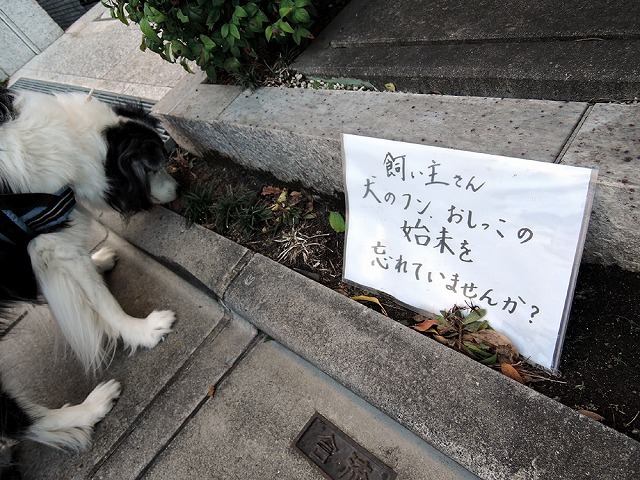 飼い主さん
犬のフン、おしっこの
始末を
忘れていませんか?
合流